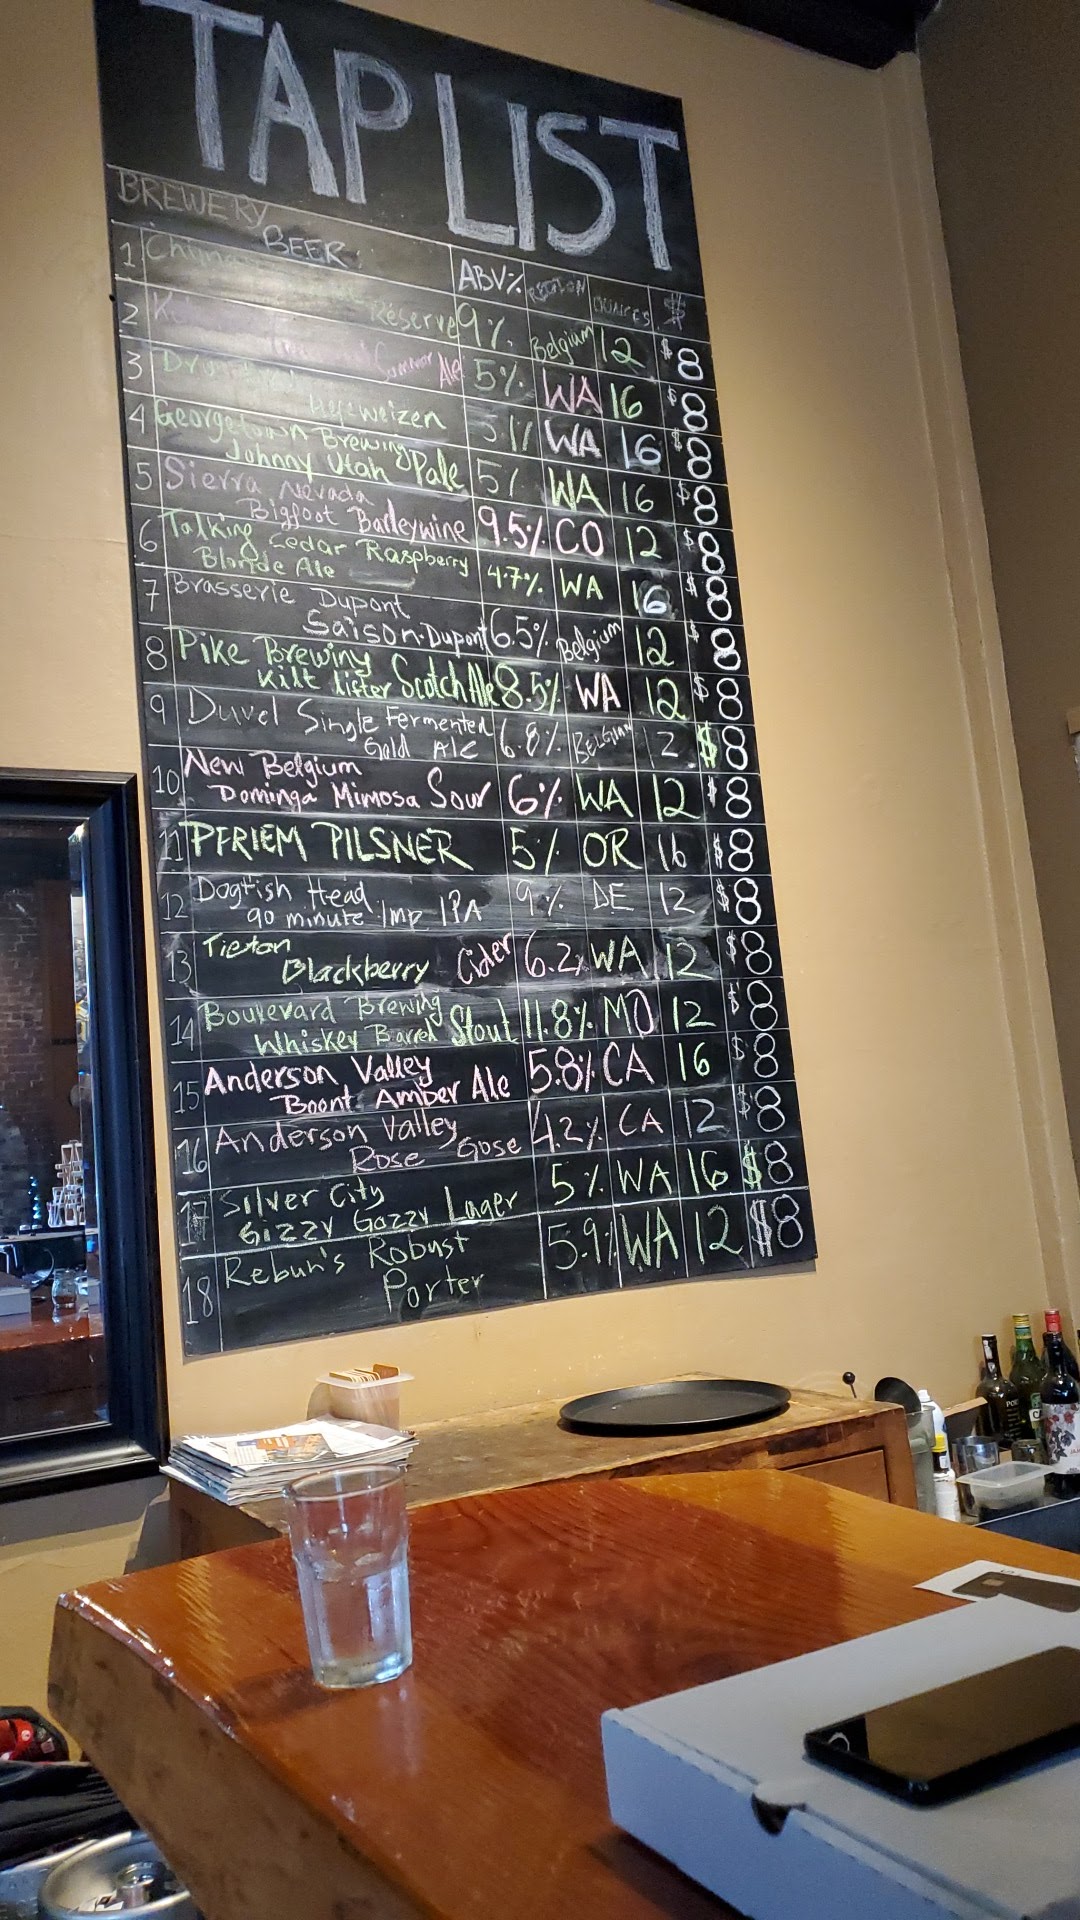 TAP LIST
BREWERY
BEER ABV% REGION OUNCES $
1
Reserve 9% Belgium 12 $8
2
Summer Ale 5% WA 16 $8
3
Hefeweizen 5.1% WA 16 $8
4 Georgetown Brewing
Johnny Utah Pale 5% WA 16 $8
5 Sierra Nevada
Bigfoot Barleywine 9.5% CO 12 $8
6 Talking Cedar Raspberry
Blonde Ale 4.7% WA 16 $8
7 Brasserie Dupont
Saison Dupont 6.5% Belgium 12 $8
8 Pike Brewing
Kilt lifter Scotch Ale 8.5% WA 12 $8
9 Duvel Single Fermented
Gold Ale 6.8% BELGIUM 12 $8
10 New Belgium
Dominga Mimosa Sour 6% WA 12 $8
11 PFRIEM PILSNER 5% OR 16 $8
12 Dogfish Head
90 minute Imp IPA 9% DE 12 $8
13 Tieton
Blackberry Cider 6.2% WA 12 $8
14 Boulevard Brewing
Whiskey Barrel Stout 11.8% MO 12 $8
15 Anderson Valley
Boont Amber Ale 5.8% CA 16 $8
16 Anderson Valley
Rose Gose 4.2% CA 12 $8
17 Silver City
Gizzy Gazzy Lager 5% WA 16 $8
18 Rebun's Robust
Porter 5.9% WA 12 $8